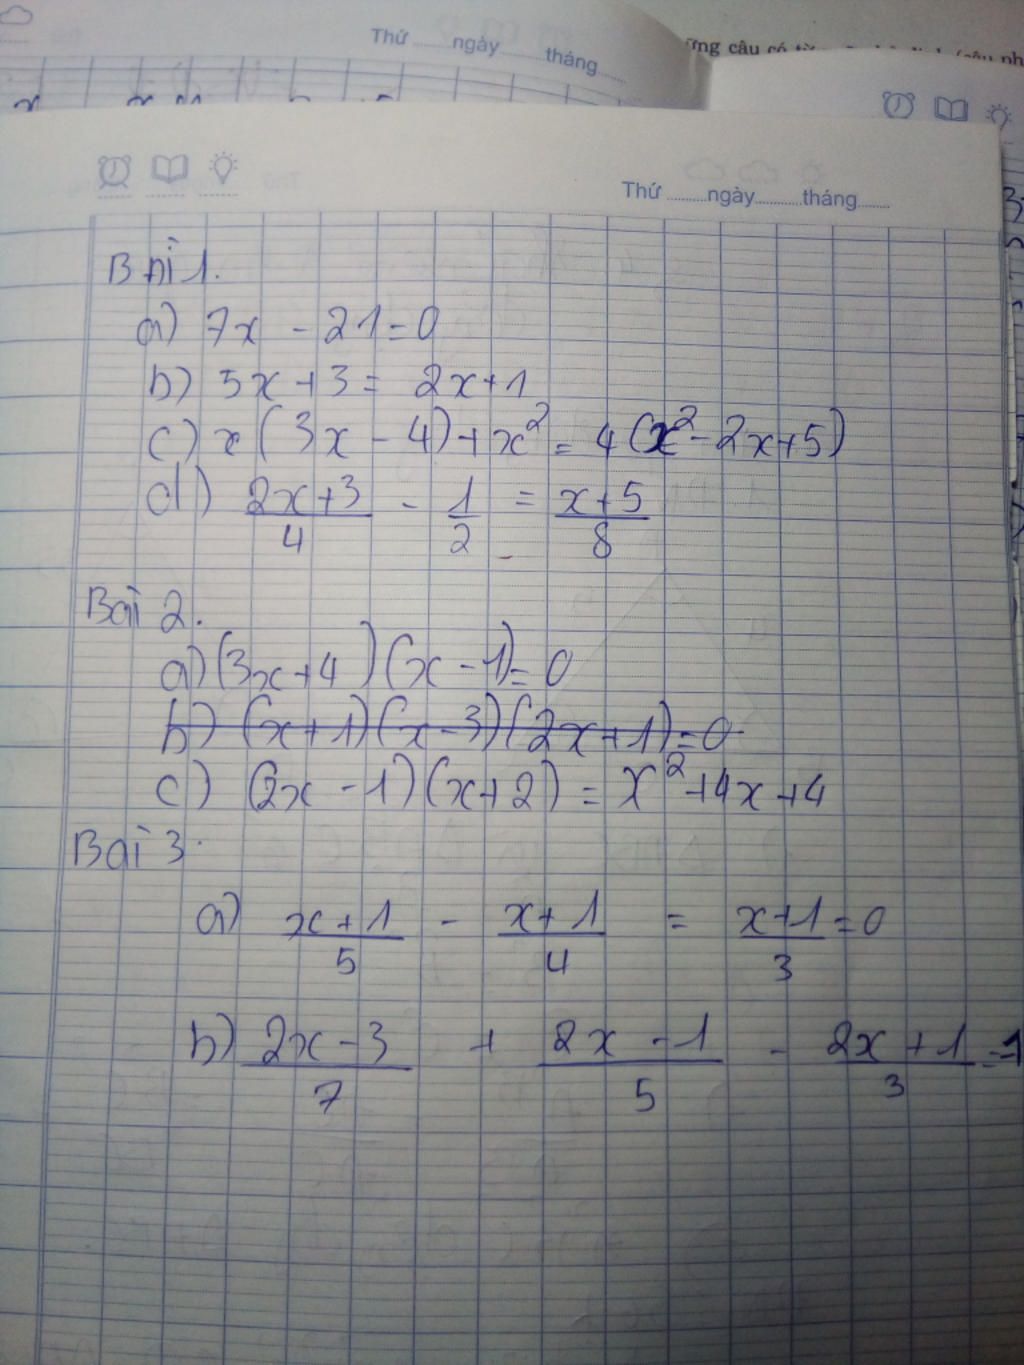 Thứ ......ngày......tháng......
ững câu có từ
Thứ ......ngày......tháng......
Bài 1.
a) 7x - 21 = 0
b) 5x + 3 = 2x + 1
c) x(3x - 4) + x² = 4(x² - 2x + 5)
d) (2x+3)/4 - 1/2 = (x+5)/8
Bài 2.
a) (3x+4)(x-1) = 0
b) (x+1)(x-3)(2x+1) = 0
c) (2x-1)(x+2) = x² + 4x + 4
Bài 3.
a) (x+1)/5 - (x+1)/4 = (x+1)/3 = 0
b) (2x-3)/7 + (2x-1)/5 - (2x+1)/3 = 1